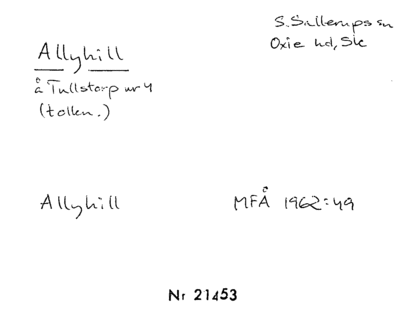 S. Sallerups sn
Oxie hd, Sk
Allyhill
å Tullstorp nr 4
(tolkn.)
Allyhill
MFÅ 1962:49
Nr 21453